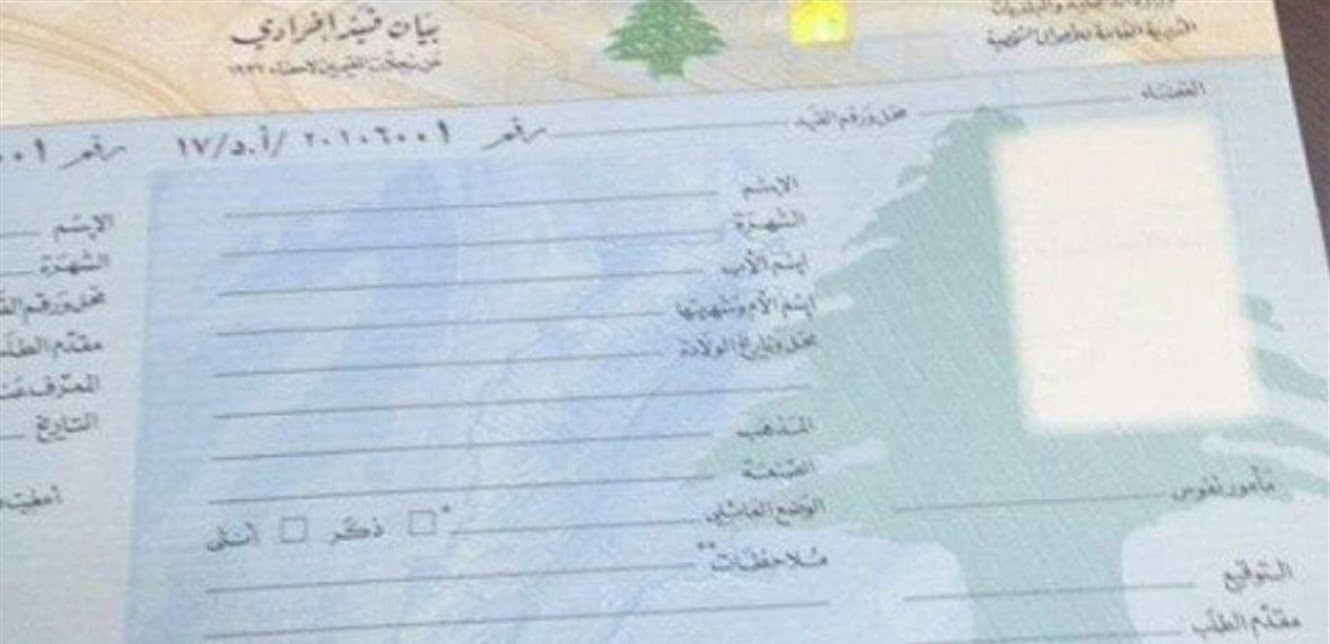 بيان قيد إفرادي
عن سجلات المقيمين لإحصاء ١٩٣٢
المديرية العامة للأحوال الشخصية
القضاء
محل ورقم القيد
رقم ٢٠١٠٦٠٠١ /أ.د/١٧
رقم
الإسم
الشهرة
إسم الأب
إسم الأم وشهرتها
محل وتاريخ الولادة
المذهب
الصنعة
الوضع العائلي
* ذكر أنثى
ملاحظات**
مأمور نفوس
التوقيع
مقدّم الطلب
الإسم
الشهرة
محل ورقم
مقدّم
المعرّف
التاريخ